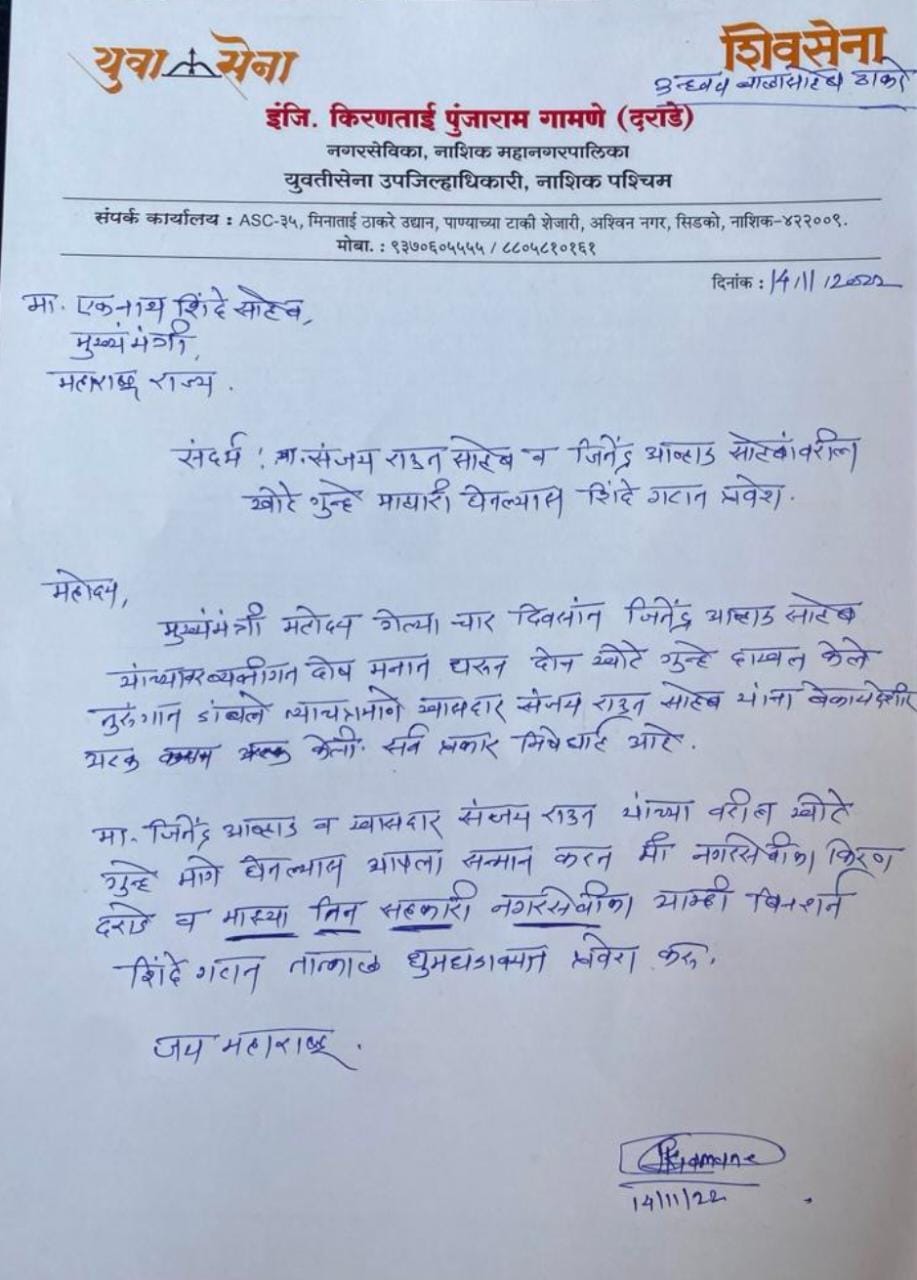 युवा सेना
शिवसेना
उध्दव बाळासाहेब ठाकरे
इंजि. किरणताई पुंजाराम गामणे (दराडे)
नगरसेविका, नाशिक महानगरपालिका
युवतीसेना उपजिल्हाधिकारी, नाशिक पश्चिम
संपर्क कार्यालय : ASC-३५, मिनाताई ठाकरे उद्यान, पाण्याच्या टाकी शेजारी, अश्विन नगर, सिडको, नाशिक-४२२००९.
मोबा. : ९३७०६०५५५५ / ८८०५८१०१६१
दिनांक : 14/11/2022
मा. एकनाथ शिंदे साहेब,
मुख्यंमंत्री,
महाराष्ट्र राज्य.
संदर्भ : मा. संजय राऊत साहेब व जितेंद्र आव्हाड साहेबांवरील
खोटे गुन्हे माघारी घेतल्यास शिंदे गटात प्रवेश.
महोदय,
मुख्यंमंत्री महोदय गेल्या चार दिवसांत जितेंद्र आव्हाड साहेब
यांच्यावर व्यक्तीगत दोष मनात धरून दोन खोटे गुन्हे दाखल केले
तुरुंगात डांबले त्याचप्रमाणे खासदार संजय राऊत साहेब यांना बेकायदेशीर
अटक केली. सर्व प्रकार निषेधार्ह आहे.
मा. जितेंद्र आव्हाड व खासदार संजय राऊत यांच्या वरील खोटे
गुन्हे मागे घेतल्यास आपला सन्मान करत मी नगरसेवीका किरण
दराडे व माझ्या तिन सहकारी नगरसेवीका आम्ही बिनशर्त
शिंदे गटात तात्काळ धुमधडाक्यात प्रवेश करू.
जय महाराष्ट्र.
Gamane
14/11/22